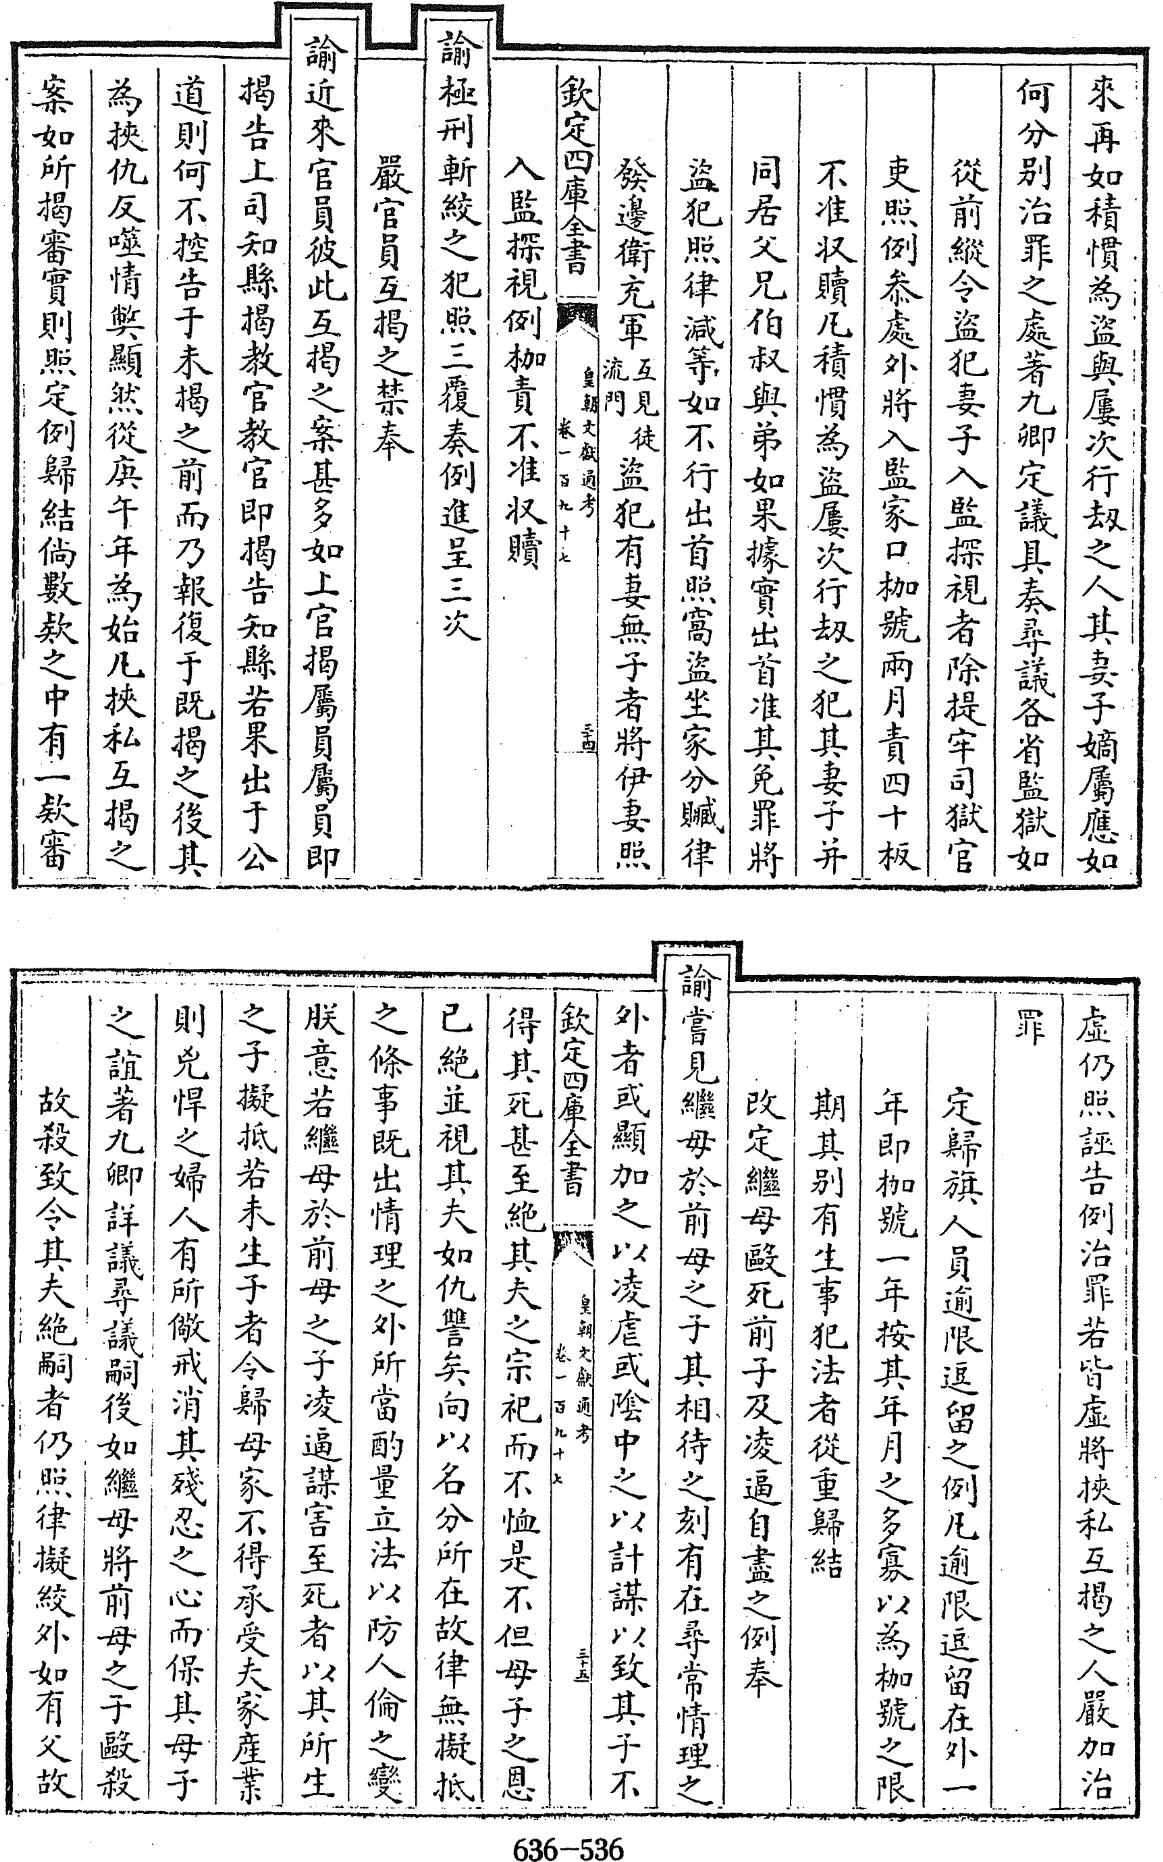 來再如積慣為盜與屢次行刼之人其妻子嫡屬應如
何分别治罪之處著九卿定議具奏尋議各省監獄如
從前縱令盜犯妻子入監探視者除提牢司獄官
吏照例叅處外將入監家口枷號兩月責四十板
不准収贖凡積慣為盜屢次行刼之犯其妻子并
同居父兄伯叔與弟如果據實出首准其免罪將
盜犯照律減等如不行出首照窩盜坐家分贓律
發邊衛充軍互見徒流門盜犯有妻無子者將伊妻照
欽定四庫全書
皇朝文獻通考
卷一百九十七
三十四
入監探視例枷責不准収贖
諭極刑斬絞之犯照三覆奏例進呈三次
嚴官員互揭之禁奉
諭近來官員彼此互揭之案甚多如上官揭屬員屬員即
揭告上司知縣揭教官教官即揭告知縣若果出于公
道則何不控告于未揭之前而乃報復于既揭之後其
為挾仇反噬情弊顯然從庚午年為始凡挾私互揭之
案如所揭審實則照定例歸結倘數欵之中有一欵審
虛仍照誣告例治罪若皆虛將挾私互揭之人嚴加治
罪
定歸旗人員逾限逗留之例凡逾限逗留在外一
年即枷號一年按其年月之多寡以為枷號之限
期其别有生事犯法者從重歸結
改定繼母毆死前子及凌逼自盡之例奉
諭嘗見繼母於前母之子其相待之刻有在尋常情理之
外者或顯加之以凌虐或陰中之以計謀以致其子不
欽定四庫全書
皇朝文獻通考
卷一百九十七
三十五
得其死甚至絶其夫之宗祀而不恤是不但母子之恩
已絶並視其夫如仇讐矣向以名分所在故律無擬抵
之條事既出情理之外所當酌量立法以防人倫之變
朕意若繼母於前母之子凌逼謀害至死者以其所生
之子擬抵若未生子者令歸母家不得承受夫家産業
則兇悍之婦人有所儆戒消其殘忍之心而保其母子
之誼著九卿詳議尋議嗣後如繼母將前母之子毆殺
故殺致令其夫絶嗣者仍照律擬絞外如有父故
636-536